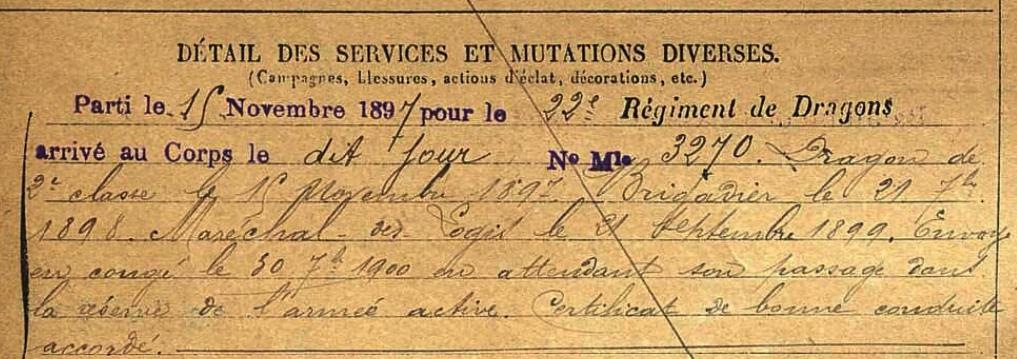 DÉTAIL DES SERVICES ET MUTATIONS DIVERSES.
(Campagnes, blessures, actions d'éclat, décorations, etc.)
Parti le 15 Novembre 1897 pour le 22e Régiment de Dragons
arrivé au Corps le dit jour No Mle 3270. Dragon de
2e classe le 15 Novembre 1897. Brigadier le 21 7bre
1898. Maréchal-des-Logis le 21 Septembre 1899. Envoyé
en congé le 30 7bre 1900 en attendant son passage dans
la réserve de l'armée active. Certificat de bonne conduite
accordé.